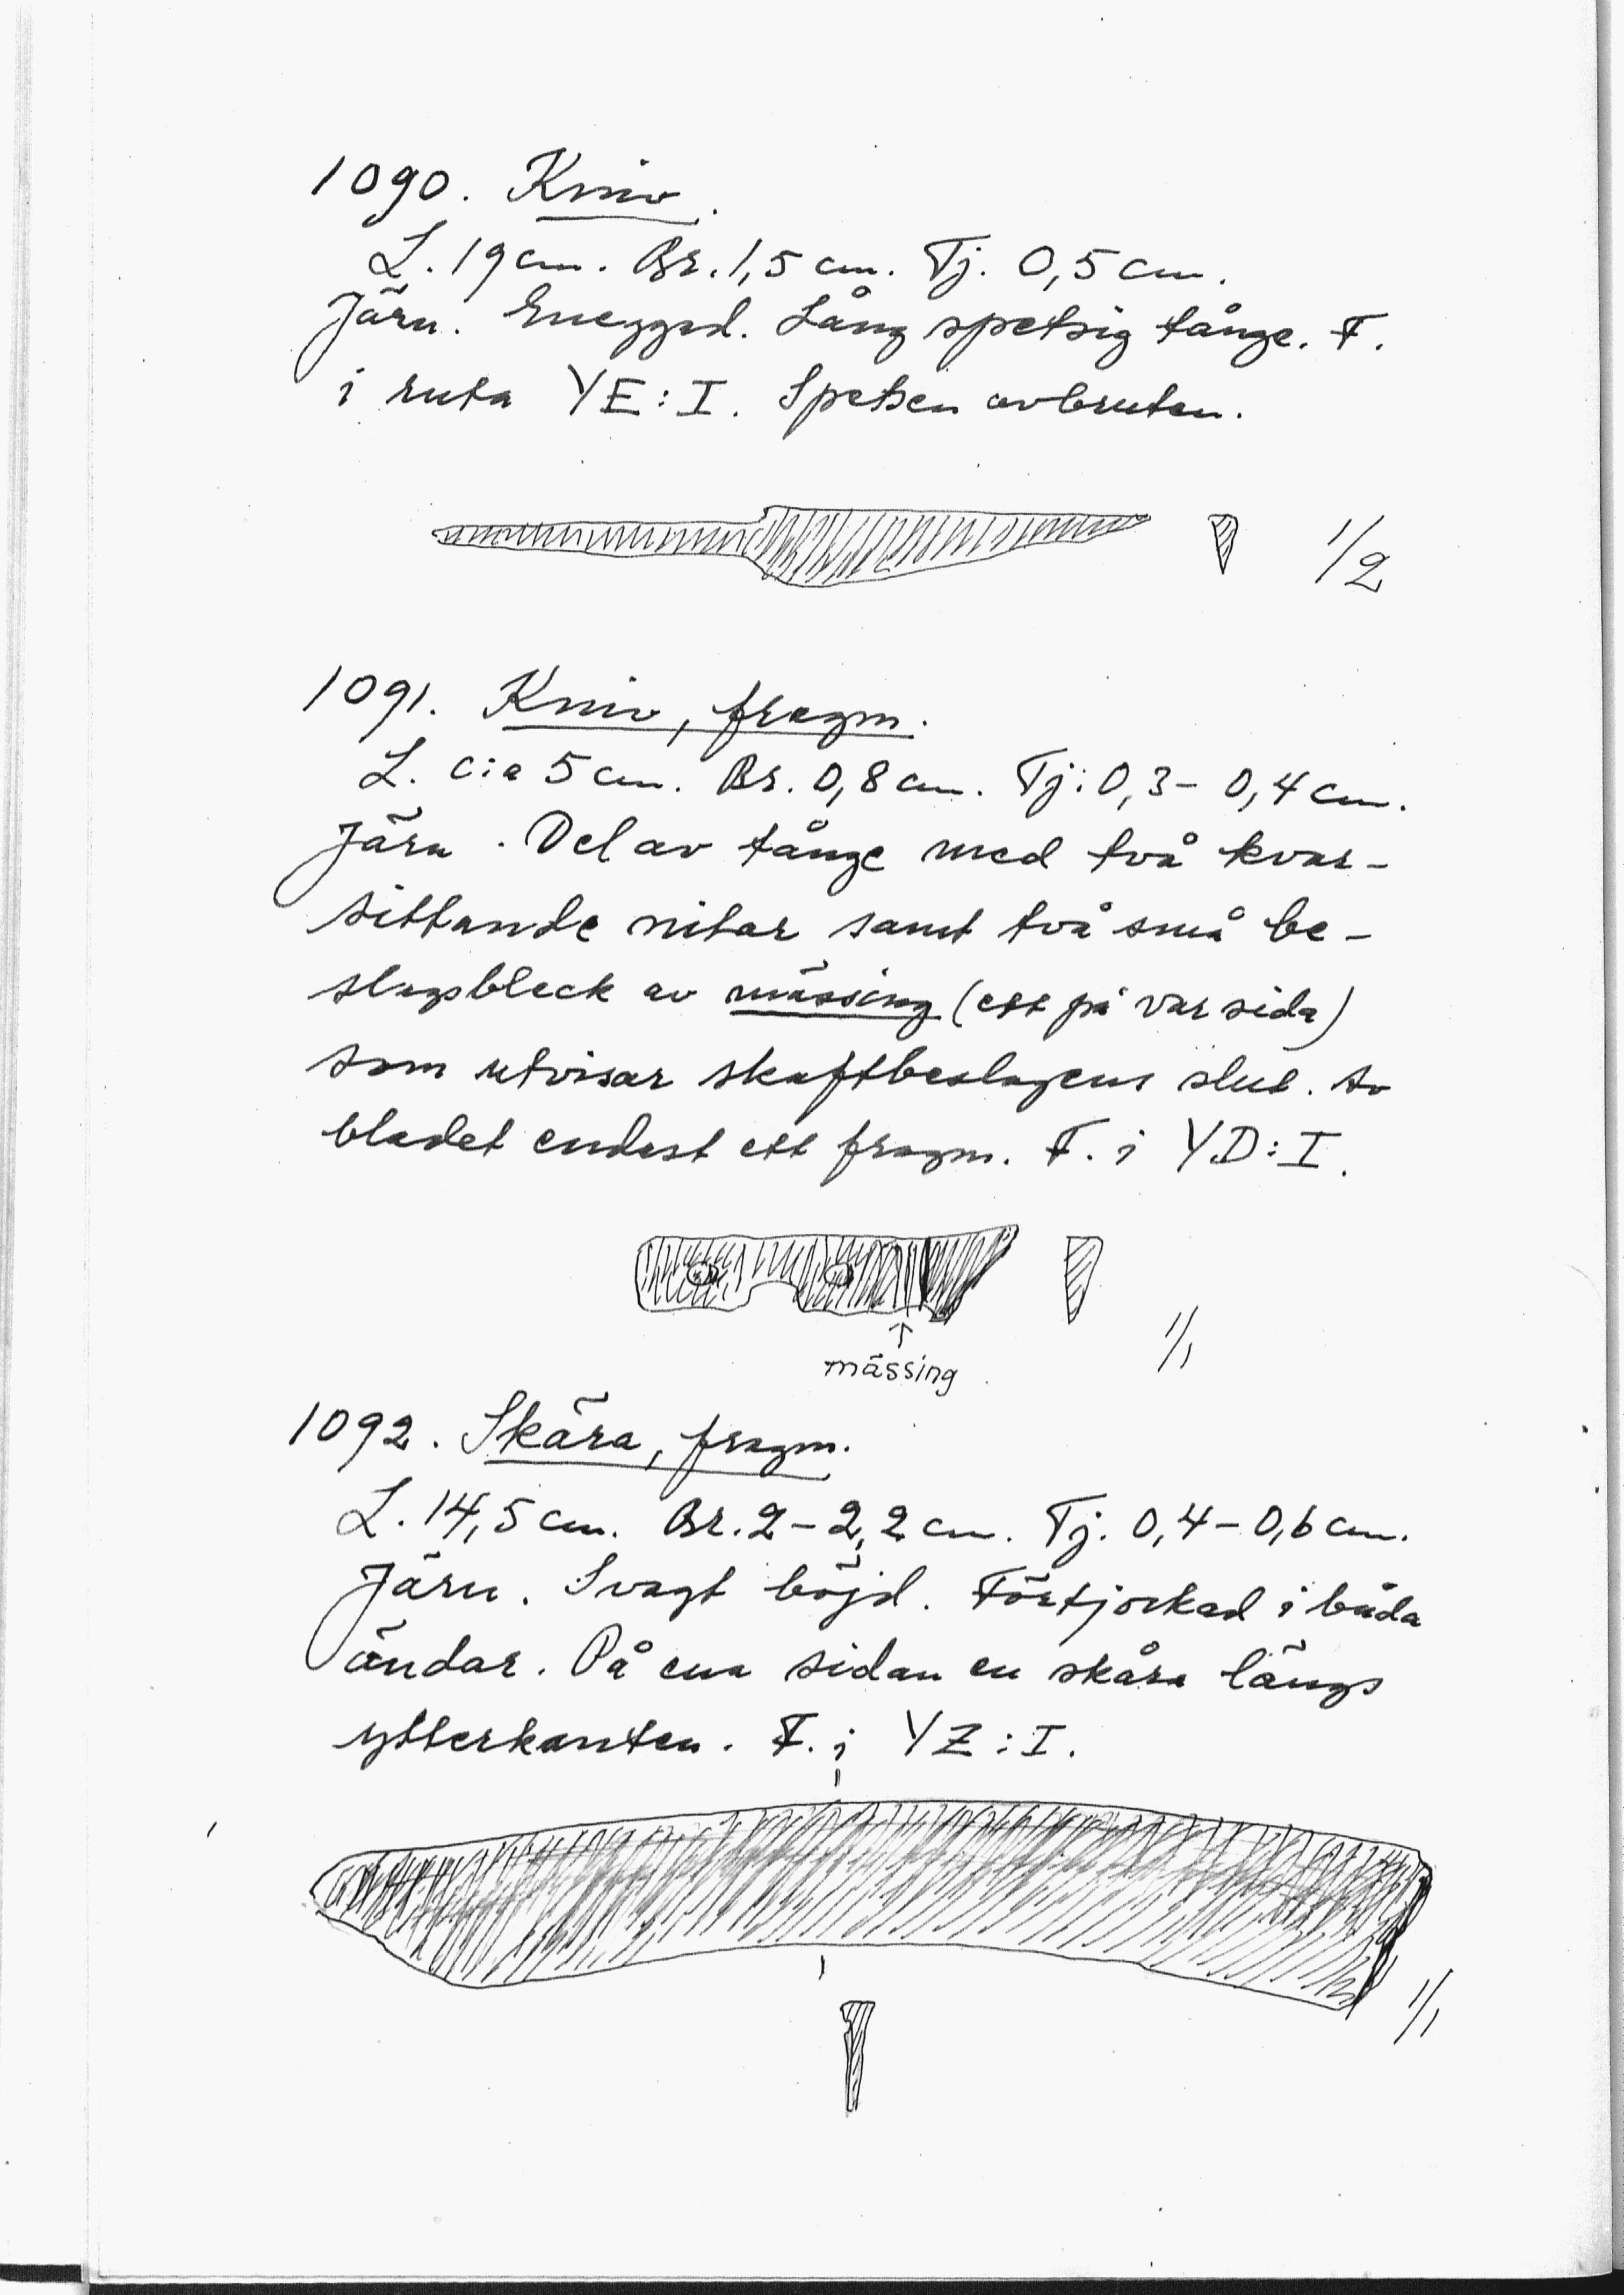 1090. Kniv.
L. 19 cm. Br. 1,5 cm. Tj. 0,5 cm.
Järn. Eneggad. Lång spetsig tånge. F.
i ruta YE:I. Spetsen avbruten.
1/2
1091. Kniv, fragm.
L. c:a 5 cm. Br. 0,8 cm. Tj: 0,3 - 0,4 cm.
Järn. Del av tånge med två kvar-
sittande nitar samt två små be-
slagsbleck av mässing (ett på var sida)
som utvisar skaftbeslagens slut. Av
bladet endast ett fragm. F. i YD:I.
mässing
1/1
1092. Skära, fragm.
L. 14,5 cm. Br. 2 - 2,2 cm. Tj. 0,4 - 0,6 cm.
Järn. Svagt böjd. Förtjockad i båda
ändar. På ena sidan en skåra längs
ytterkanten. F. i YZ:I.
1/1